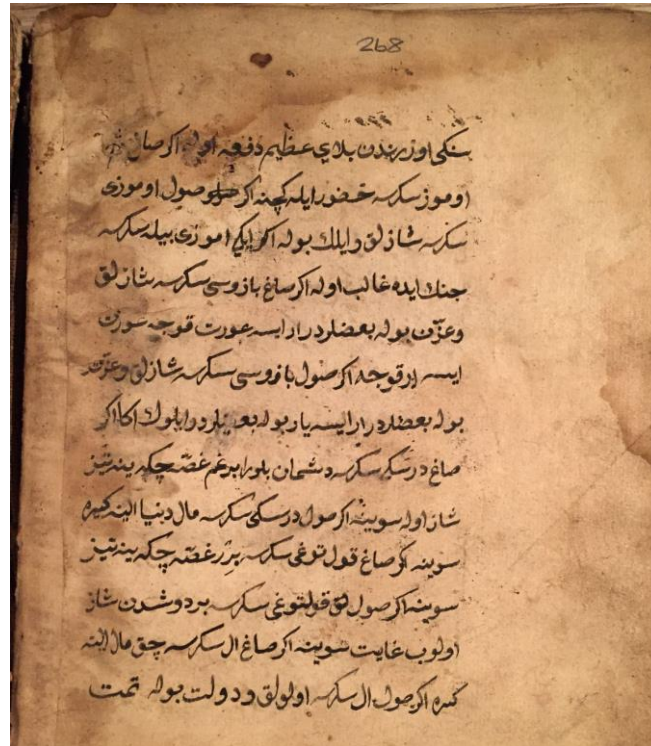 268
اوزرندن بلاي عظيم دفعه اوله اكر صاغ
اوموز سكرسه حضور ايله كچنه اكر صول اوموزى
سكرسه شازلق وايلك بوله اكر ايكى اموزى بيله سكرسه
جنك ايده غالب اوله اكر صاغ بازوسى سكرسه شازلق
وعزت بوله بعضلر درار ايسه عورت قوجه عورت
ايسه ار قوجه اكر صول بازوسى سكرسه شازلق وعزت
بوله بعضلر درار ايسه يار بوله بعضيلر درايلوك اكا اكر
صاغ درسكى سكرسه دشمان بلورا بر غم غصه چكه ينه تيز
شاز اوله سوينه اكر صول درسكى سكرسه مال دنيا الينه كيره
سوينه اكر صاغ قول توغى سكرسه بر غصه چكه ينه تيز
سوينه اكر صول قولتوغى سكرسه بر دوشدن شاز
اولوب غايت سوينه اكر صاغ ال سكرسه چق مال الينه
كيره اكر صول ال سكرسه اولولق ودولت بوله تمت